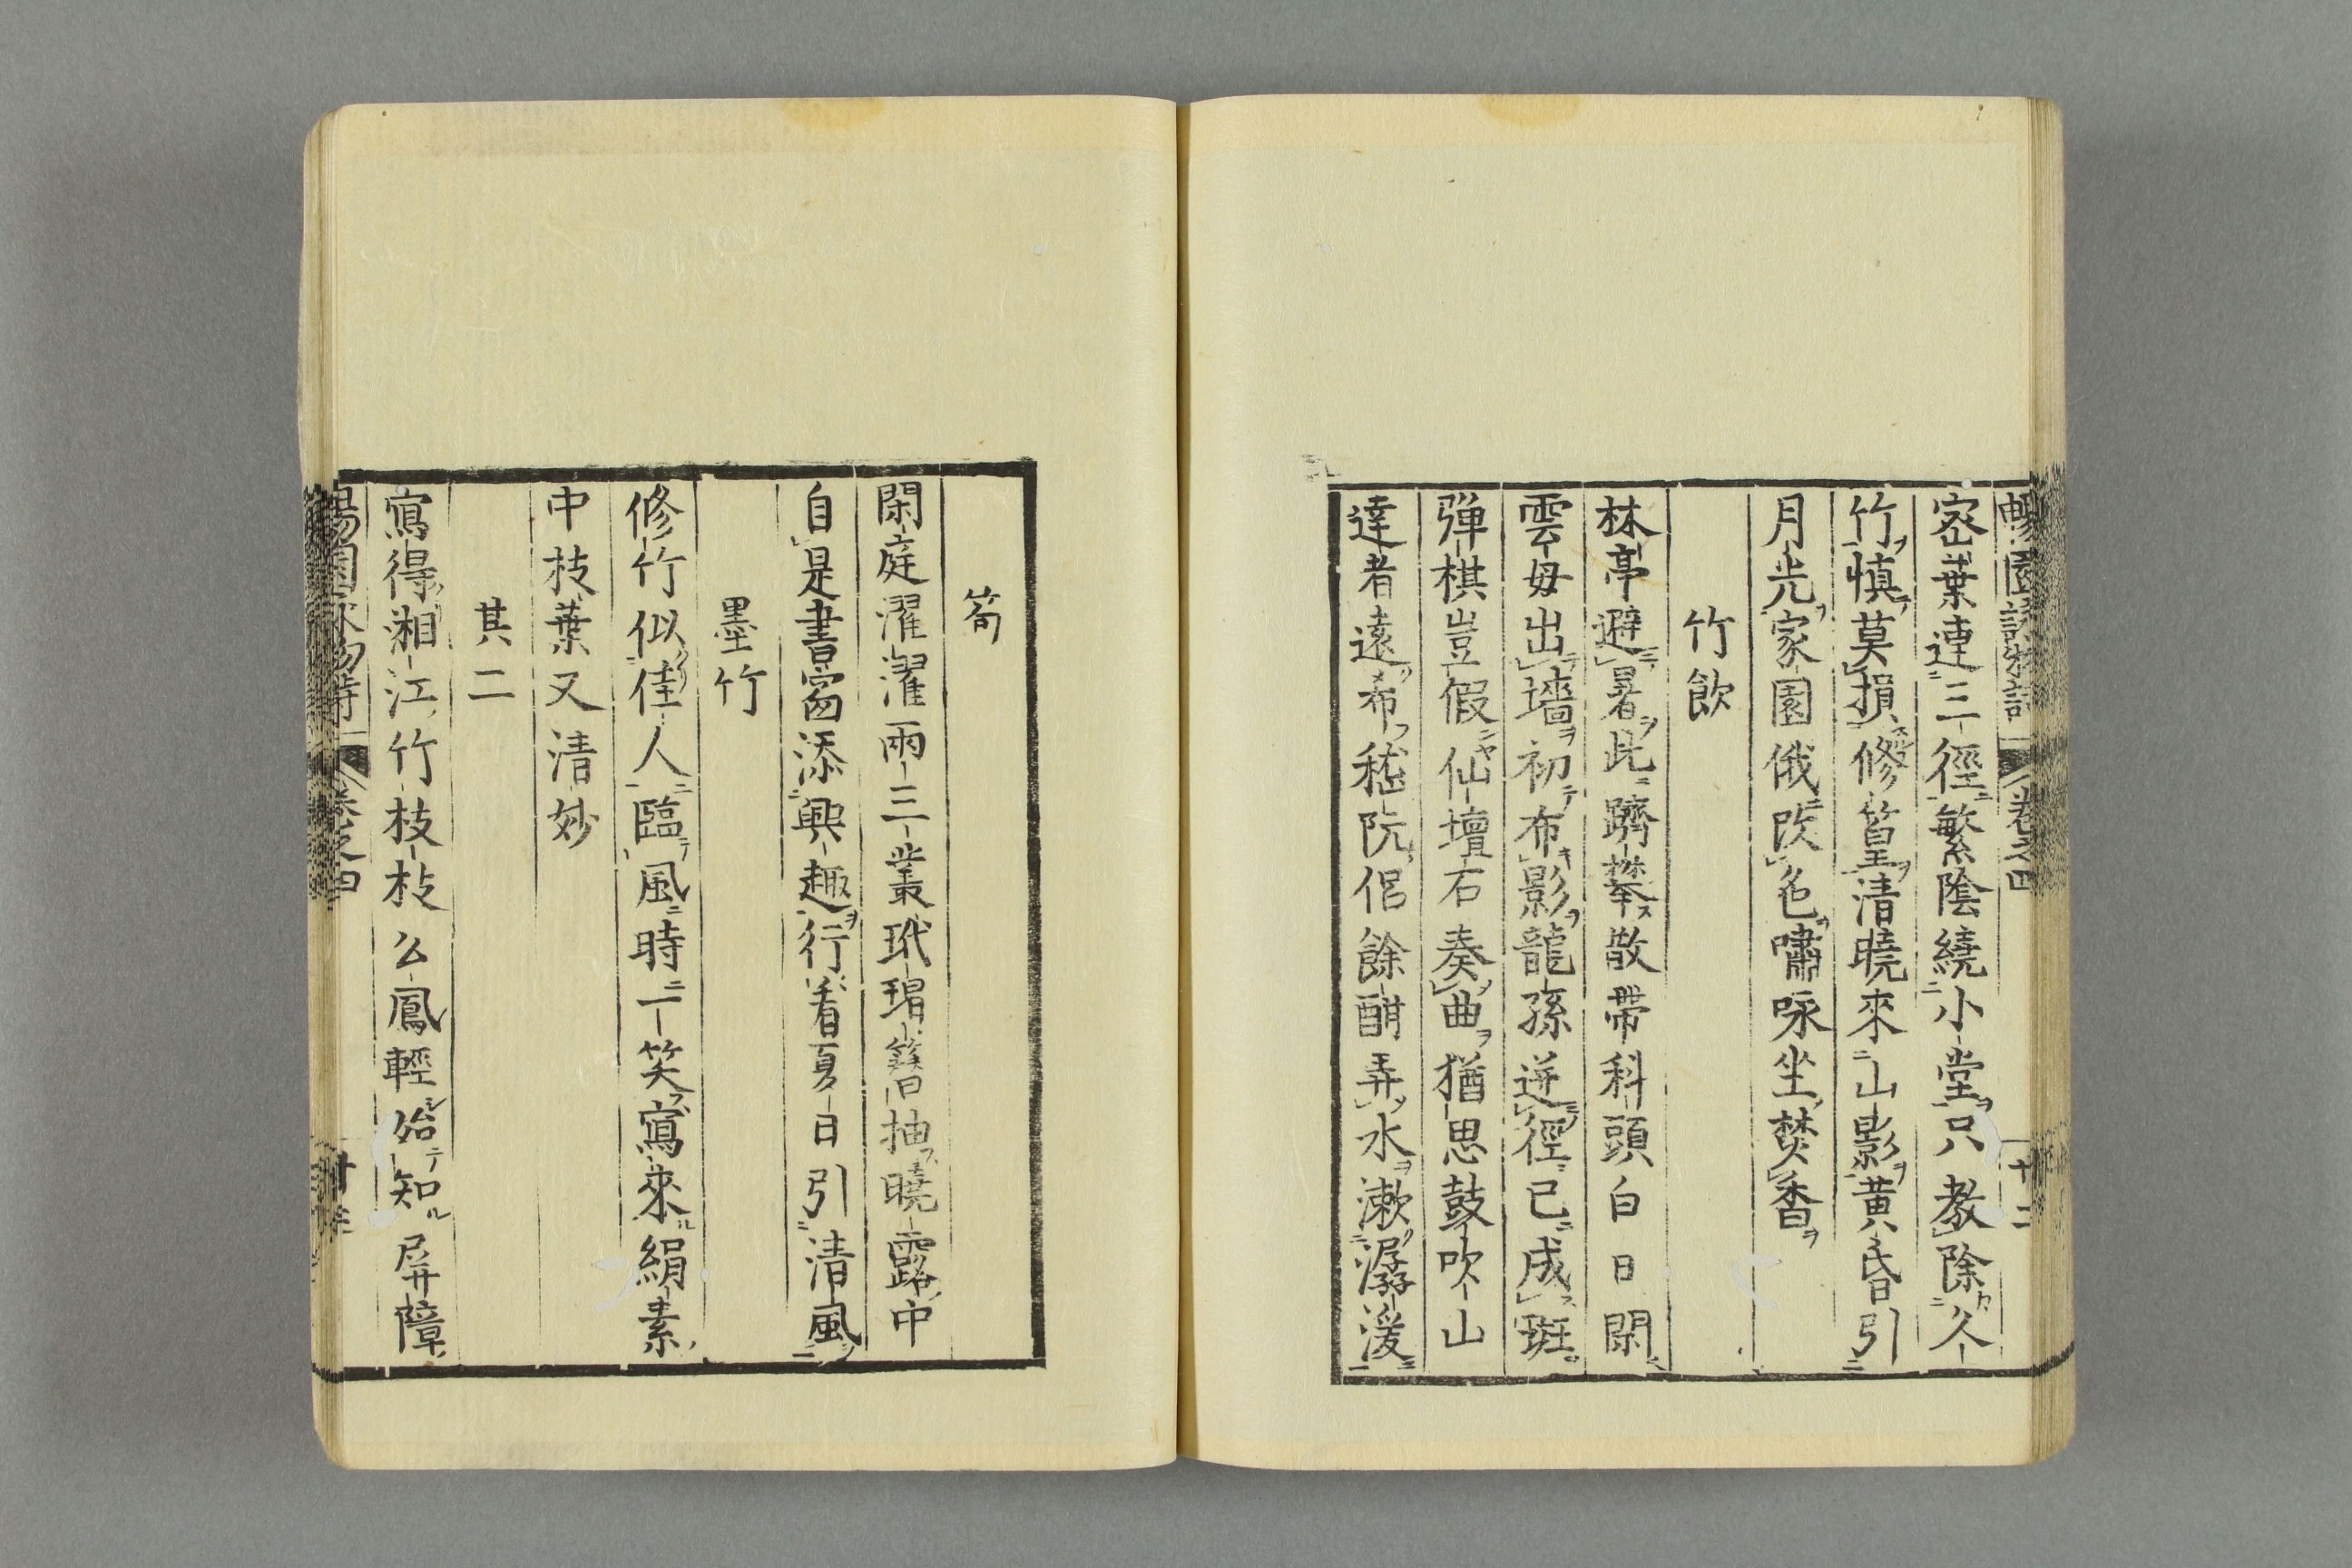 暢園詠物詩 卷之四 十二
密葉連三徑繁陰繞小堂只教除久
竹慎莫損修篁清曉來山影黃昏引
月光家園俄改色嘯咏坐焚香
竹飲
林亭避暑此躋攀散帶科頭白日閑
雲母出墻初布影龍孫迸徑已成斑
彈棋豈假仙壇石奏曲猶思鼓吹山
達者遠希嵇阮侶餘酣弄水漱潺湲
筍
閑庭濯濯兩三叢玳瑁簪抽曉露中
自是書窗添興趣行看夏日引清風
墨竹
修竹似佳人臨風時一笑寫來絹素
中枝葉又清妙
其二
寫得湘江竹枝枝么鳳輕始知屏障
暢園詠物詩 卷之四 十三